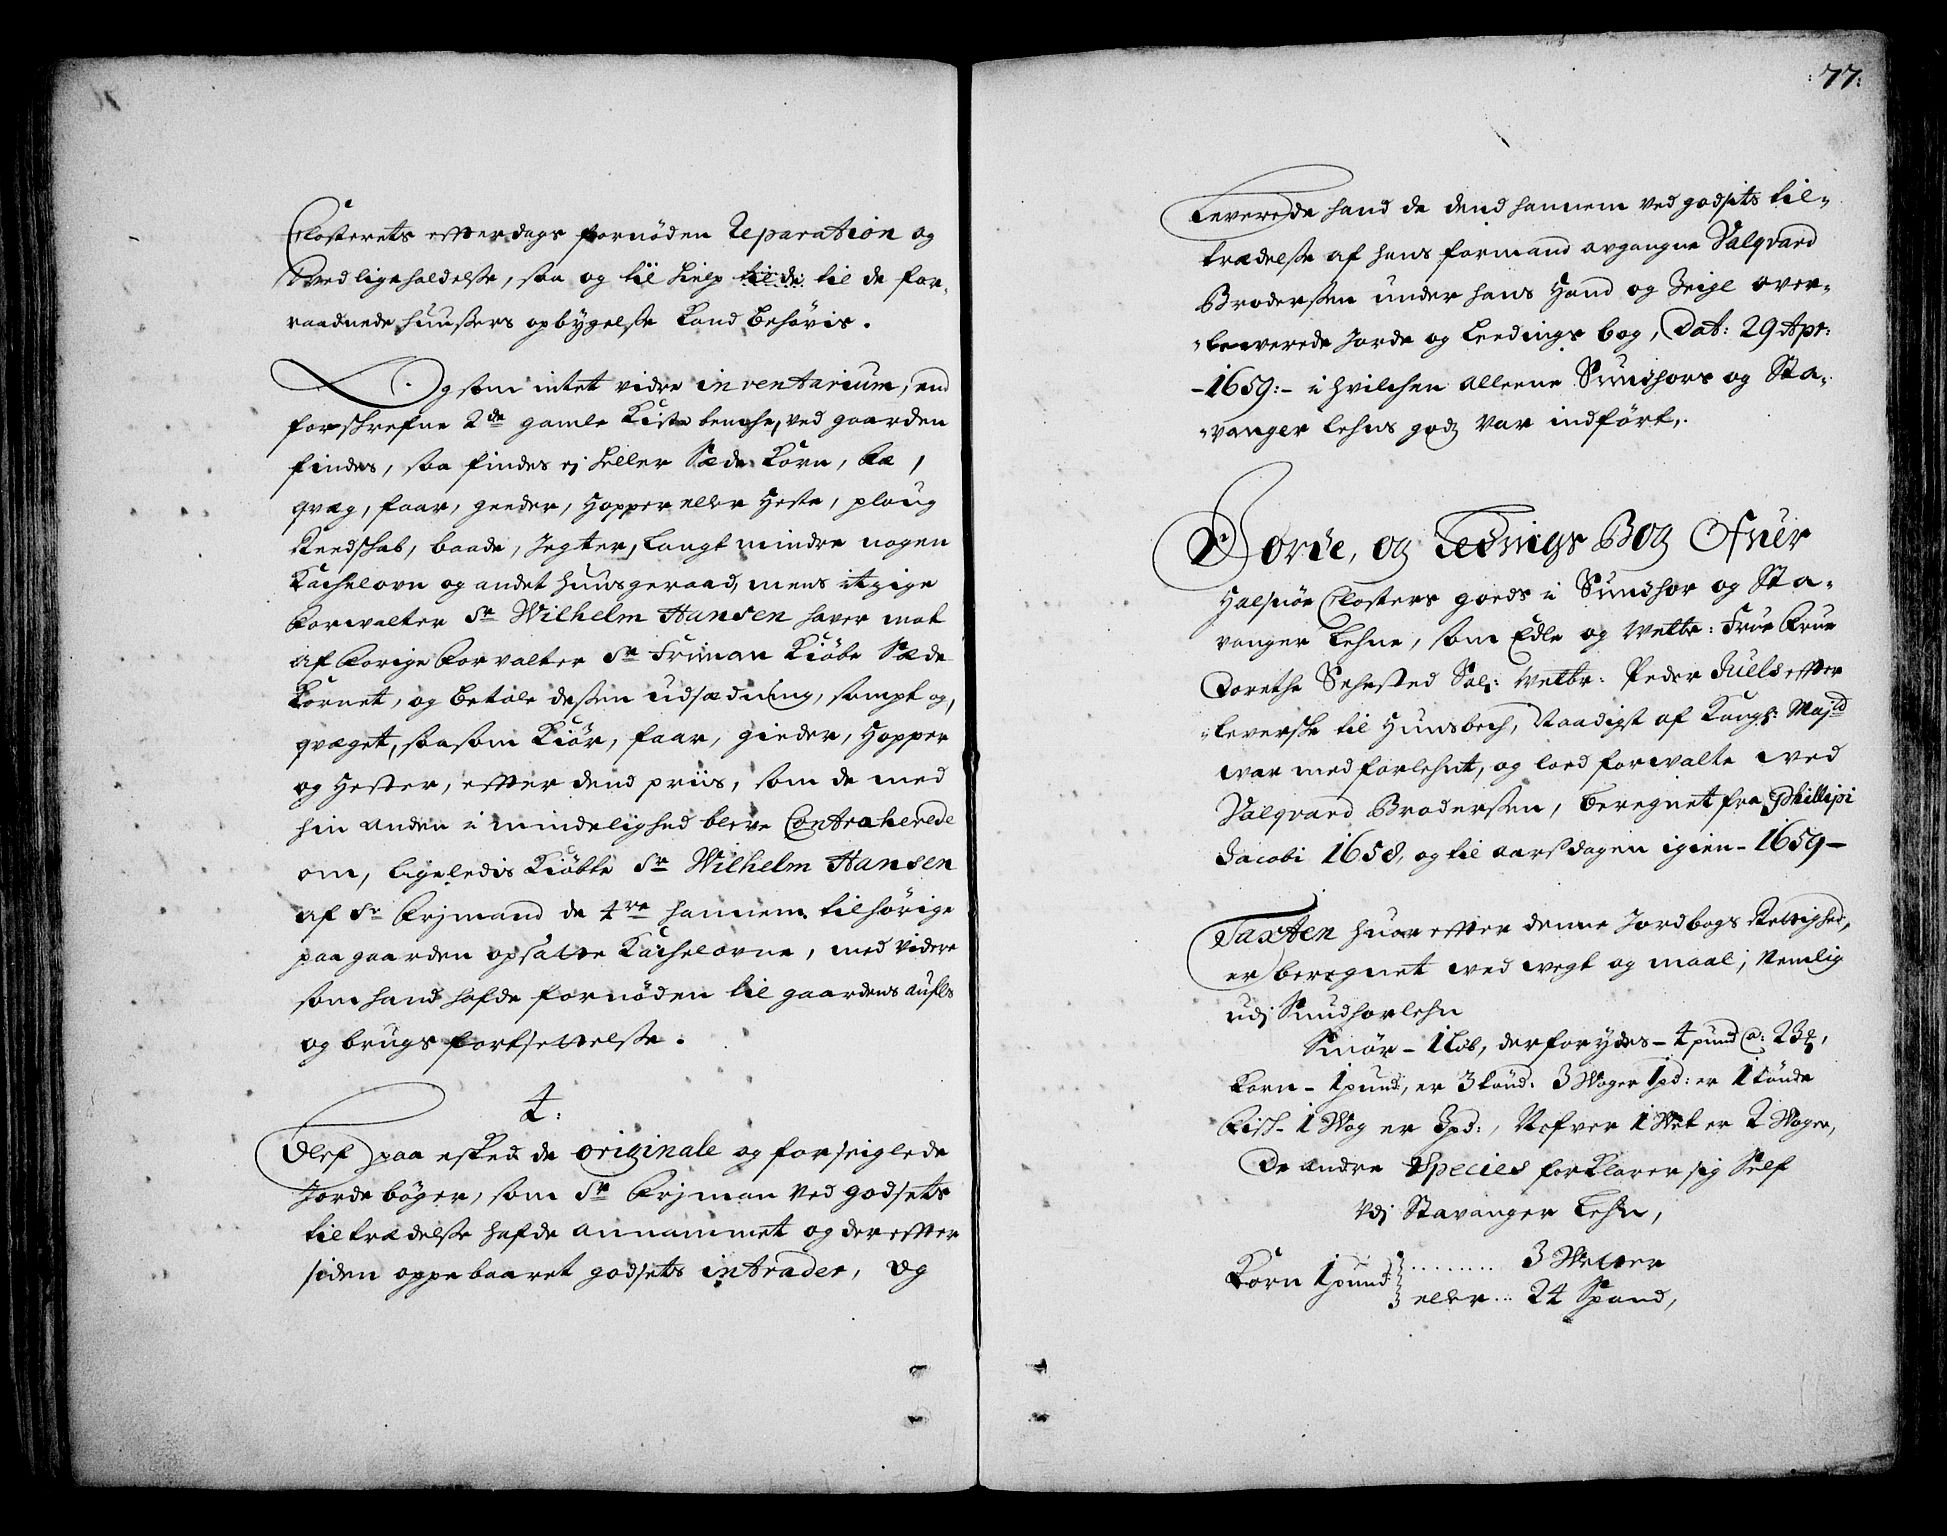 Closterets effterdags fornøden Reparation og
Vedligeholdelse, saa og til hielp til de til de for-
raadnede huusers opbÿgelse kand behøvis.
Og som intet vidre inventarium, end
forskrefne 2de gamle Kiste benche, ved gaarden
findes, saa findes ej heller Sæde Korn, Kiø,
qvæg, faar, geeder, Hopper eller Heste, ploug
Reedskab, baade, Jegter, langt mindre nogen
Kachelovn og andet huusgeraad, mens itzige
Forvalter Sr Wilhelm Hansen haver mot
af forige Forvalter Sr Friman Kiøbe Sæde
Kornet, og betale dessen udsædning, sampt og,
qvæget, saasom Kiør, faar, gieder, Hopper
og Hester, effter dend priis, som de med
hin anden i mindelighed bleve Contraherede
om, ligeledis Kiøbte Sr Wilhelm Hansen
af Sr Frjmand de 4re hannem tilhørige
paa gaarden opsatte Kachelovne, med videre
som hand hafde fornøden til gaardens aufls
og brugs fortsettelse.
4:
Blef paa esked de originale og forseiglede
Jorde bøger, som Sr Frjman ved godsets
tiltrædelse hafde annammet og dereffter
siden oppebaaret godsets intrader, og
:77:
Leverede hand da dend hannem ved godsits til-
trædelse af hans formand avgangne Valqvard
Brodersen under hans Hand og Seigl over-
leverede Jorde og Leedings bog, Dat: 29 Apr:
-1659:- i hvilchen alleene Sundhors og Sta-
vanger lehns godz var indført,.
Jorde, og Lednigs Bog Ofuer
Halsnøe Closters goeds i Sundhor og Sta-
vanger Lehne, som Edle og Velbr: Frue Frue
Dorethe Sehested Sal: Velbr: Peder Juels effter
leverske til Hunsbech, Naadigst af Kongl: Majtd
war med forlehnt, og loed forwalte wed
Valqvard Brodersen, beregnet fra Phillipi
Jacobi 1658, og til aarsdagen igien - 1659 -
Taxten huor effter denne Jordbogs Rettighed,
er beregnet wed wegt og maal; Nemlig
udj Sundhorlehn
Smør - 1 Løb, derfor ydes - 4 pund a: 23 ℔,
Korn - 1 pund, er 3 tønd. 3 Woger 1 pd: er 1 tønde
Fisk - 1 Wog er 3 pd:, Nefver 1 Wet er 2 Woger,
De andre Species forklarer sig Self
Vdj Stavanger Lehn,
Korn 1 pund ......... 3 Wetter
eller ... 24 Spand,